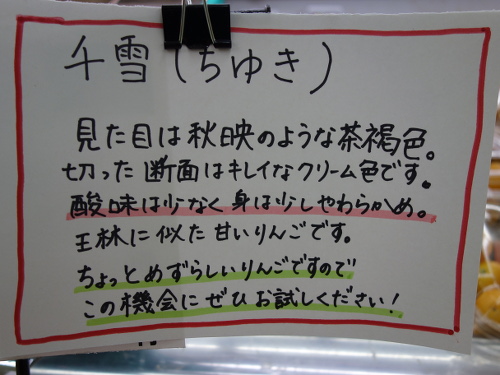 千雪(ちゆき)
見た目は秋映のような茶褐色。
切った断面はキレイなクリーム色です。
酸味は少なく身は少しやわらかめ。
王林に似た甘いりんごです。
ちょっとめずらしいりんごですので
この機会にぜひお試しください!